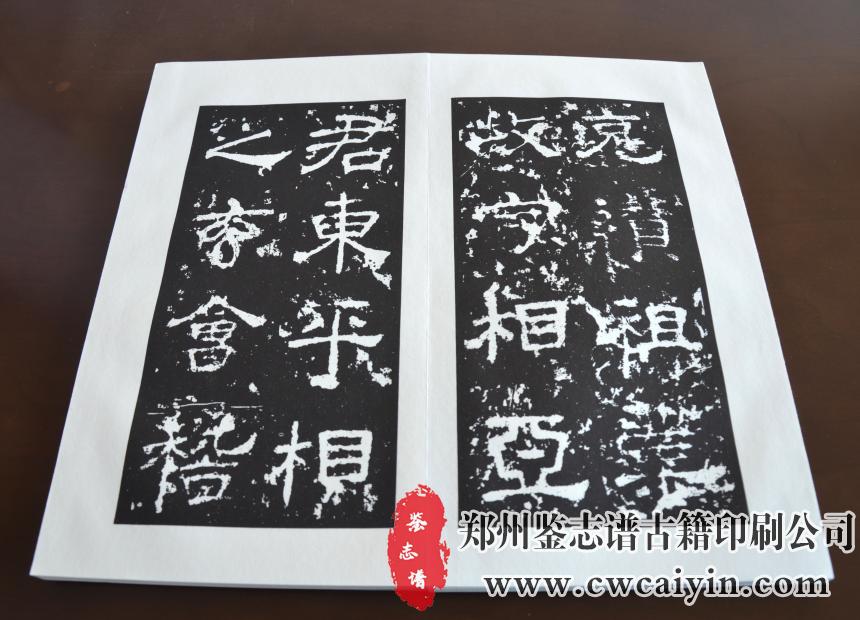 克纘祖業
牧守相亞
君東平相
之玄會稽
鉴志谱
郑州鉴志谱古籍印刷公司
www.cwcaiyin.com